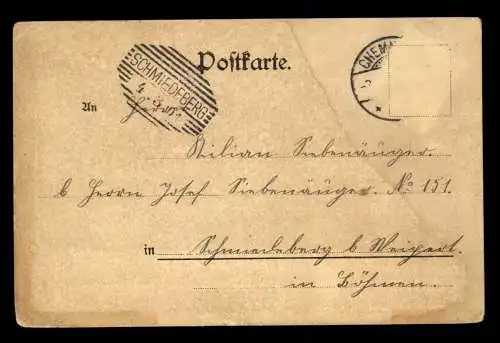 Postkarte.
SCHMIEDEBERG
CHEM
An Herrn
Kilian Siebenäuger.
b. Herrn Josef Siebenäuger. No 151.
in Schmiedeberg b Weipert.
in Böhmen.